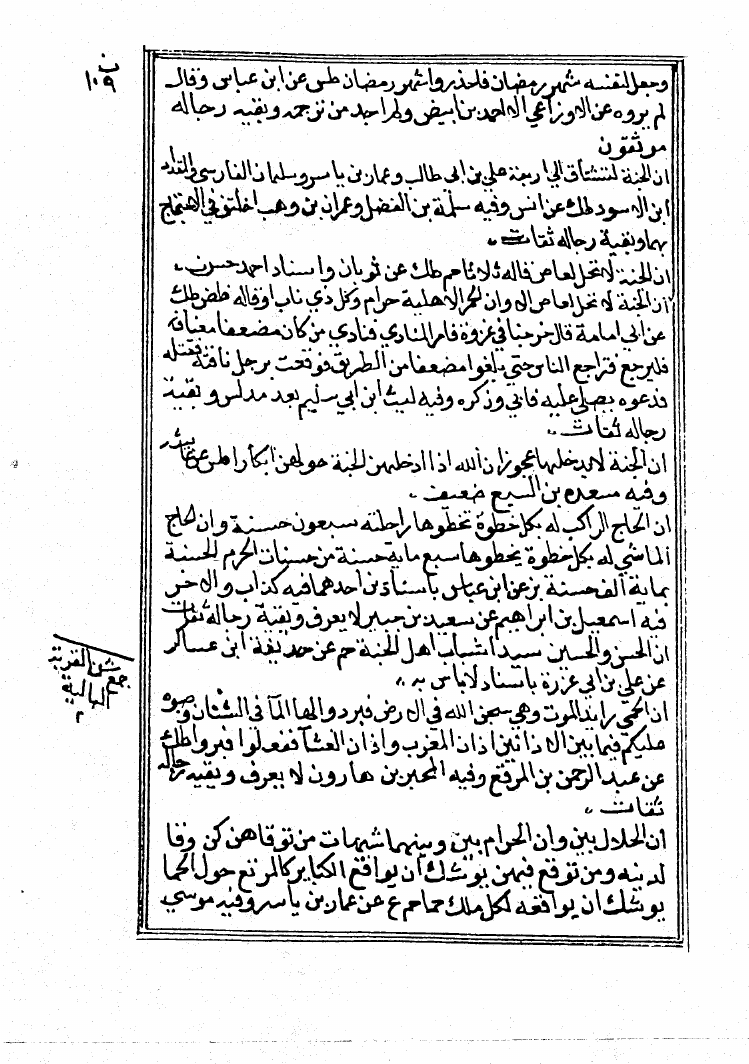 ن
١٠٩
وجعل لنفسه شهر رمضان فاحذروا شهر رمضان طس عن ابن عباس وقال
لم يروه عن الاوزاعي الا احمد بن ابيض ولم اجد من ترجمه وبقية رجاله
موثقون
ان الجنة لتشتاق الي اربعة علي بن ابي طالب وعمار بن ياسر وسلمان الفارسي والمقداد
ابن الاسود طك عن انس وفيه سلمة بن الفضل وعمران بن وهب اختلف في الاحتجاج
بهما وبقية رجاله ثقات
ان الجنة لا تحل لعاص قاله ثلاثا حم طك عن ثوبان واسناد احمد حسن
ان الجنة لا تحل لعاص الا وان الحمر الاهلية حرام وكل ذي ناب او قال ظفر طك
عن ابي امامة قال خرجنا في غزوة فامر المنادي فنادي من كان مضعفا معنا
فليرجع فتراجع الناس حتي بلغوا مضعفا من الطريق فوقعت برجل ناقته فقتله
فدعوه يصلي عليه فابي وذكره وفيه ليث ابن ابي سليم يعد مدلس وبقية
رجاله ثقات
ان الجنة لا يدخلها عجوز ان الله اذا ادخلهن الجنة حولهن ابكارا طس عن عائشة
وفيه مسعدة بن اليسع ضعيف
ان الحاج الراكب له بكل خطوة تخطوها راحلته سبعون حسنة وان الحاج
الماشي له بكل خطوة يخطوها سبع ماية حسنة من حسنات الحرم الحسنة
بماية الف حسنة بز عن ابن عباس باسنادين احدهما فيه كذاب والاخر
فيه اسمعيل بن ابراهيم عن سعيد بن جبير لا يعرف وبقية رجاله ثقات
ان الحسن والحسين سيدا شباب اهل الجنة حم عن حذيفة ابن عساكر
عن علي بن ابي عزرة باسناد لا باس به
ان الحمي رايد الموت وهي سجن الله في الارض فبردوا لها الما في الشنان وصبوه
عليكم فيما بين الاذانين اذان المغرب واذان العشا ففعلوا فبروا طك
عن عبد الرحمن بن المرقع وفيه المحبر بن هارون لا يعرف وبقية رجاله
ثقات
ان الحلال بين وان الحرام بين وبينهما شبهات من توقاهن كن وقا
لدينه ومن توقع فيهن يوشك ان يواقع الكباير كالمرتع حول الحما
يوشك ان يواقعه لكل ملك حما حم ع عن عمار بن ياسر وفيه موسي
جمع شن القربة
البالية